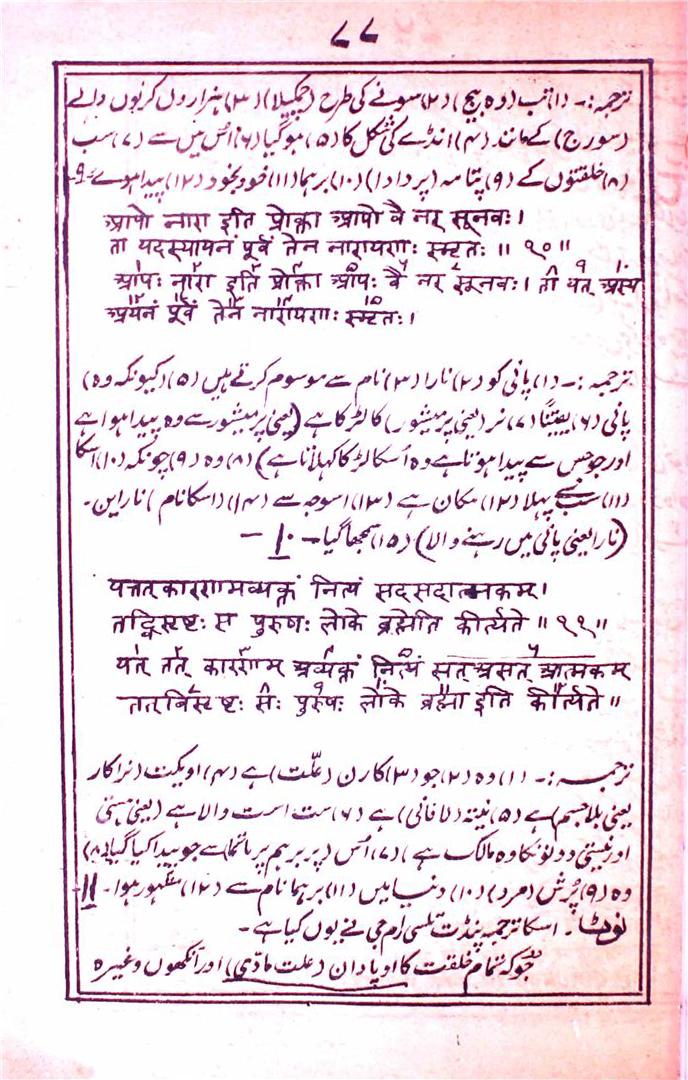 ۷۷
ترجمہ:۔ (۱) تب (وہ بیج) (۲) سونے کی طرح (چمکیلا) (۳) ہزاروں کرنوں والے
(سورج) کے مانند (۴) انڈے کی شکل کا (۵) ہو گیا (۶) اُس میں سے (۷) سب
(۸) خلقتوں کے (۹) پتامہ (پردادا) (۱۰) برہما (۱۱) خود بخود (۱۲) پیدا ہوے ۔۹۔
आपो नारा इति प्रोक्ता आपो वै नर सूनवः।
ता यदस्यायनं पूर्वं तेन नारायणः स्मृतः॥ १०॥
आपः नारा इति प्रोक्ता आपः वै नर सूनवः। ता यत् अस्य
अयनं पूर्वं तेन नारायणः स्मृतः।
ترجمہ:۔ (۱) پانی کو (۲) نارا (۳) نام سے موسوم کرتے ہیں (۵) (کیونکہ وہ)
پانی (۶) یقیناً (۷) نر (یعنی پرمیشور) کا لڑکا ہے (یعنی پرمیشور سے وہ پیدا ہوا ہے
اور جو جس سے پیدا ہوتا ہے وہ اُسکا لڑکا کہلاتا ہے) (۸) وہ (۹) چونکہ (۱۰) اسکا
(۱۱) سب سے پہلا (۱۲) مکان ہے (۱۳) اسوجہ سے (۱۴) (اسکا نام) ناراین۔
(نارا یعنی پانی میں رہنے والا) (۱۵) سمجھا گیا۔ ۔۱۰۔
यत्तत्कारणमव्यक्तं नित्यं सदसदात्मकम्।
तद्विसृष्टः स पुरुषः लोके ब्रह्मेति कीर्त्यते॥ ११॥
यत् तत् कारणम् अव्यक्तं नित्यं सत् असत् आत्मकम्
तत् विसृष्टः सः पुरुषः लोके ब्रह्मा इति कीर्त्यते॥
ترجمہ:۔ (۱) وہ (۲) جو (۳) کارن (علّت) ہے (۴) اویکت (نراکار
یعنی بلا جسم) ہے (۵) نیتہ (لافانی) ہے (۶) ست است والا ہے (یعنی ہستی
اور نیستی دونوکا وہ مالک ہے) (۷) اُس (پربرہم پرماتما) سے جو پیدا کیا گیا (۸)
وہ (۹) پُرش (مرد) (۱۰) دنیا میں (۱۱) برہما نام سے (۱۲) مشہور ہوا۔ ۱۱۔
نوٹ۔ اسکا ترجمہ پنڈت تلسی رام جی نے یوں کیا ہے۔
جو کہ تمام خلقت کا اوپادان (علت مادّی) اور آنکھوں وغیرہ